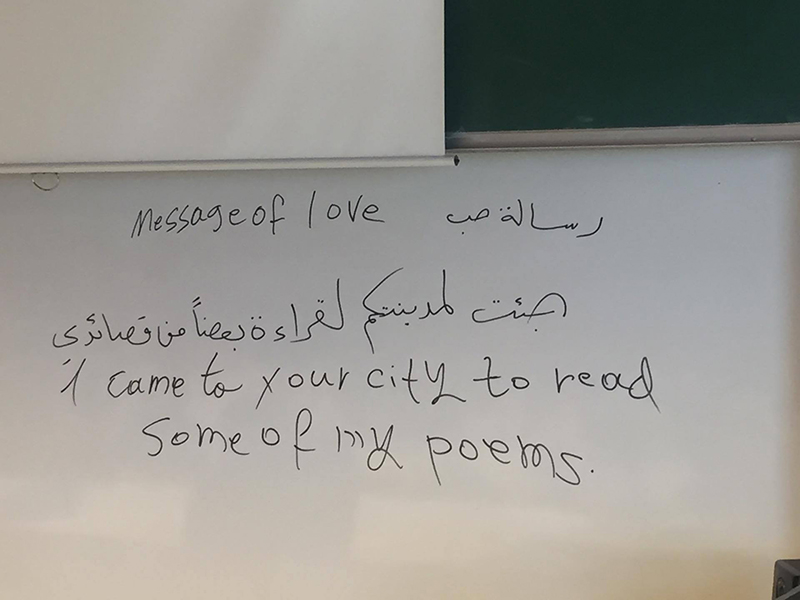 Message of love رسالة حب
جئت لمدينتكم لقراءة بعضاً من قصائدي
I came to your city to read
some of my poems.